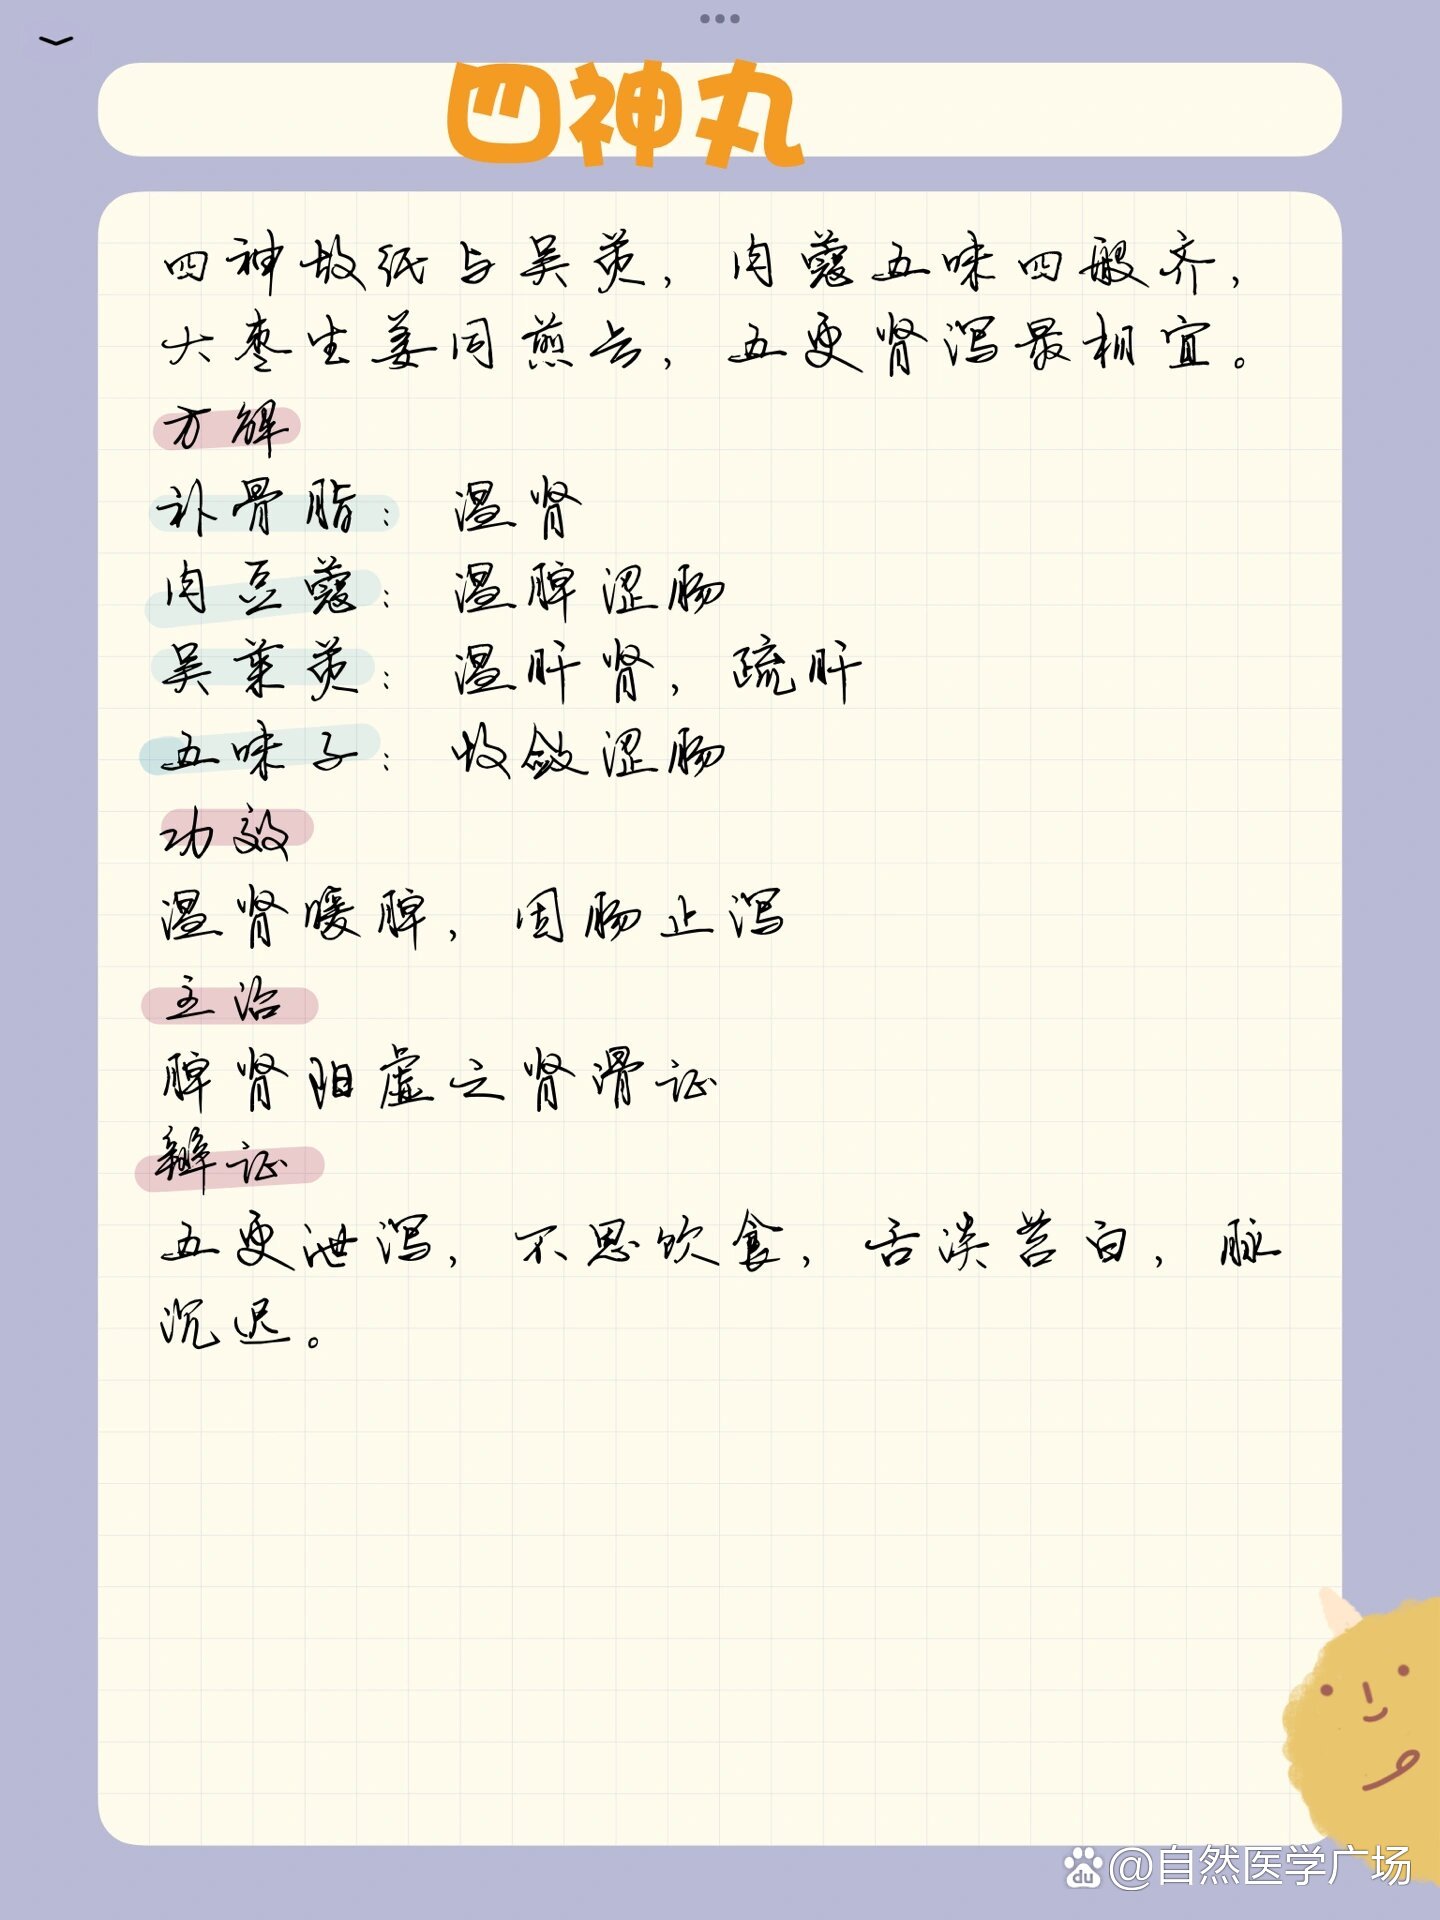 四神丸
四神故纸与吴萸，肉蔻五味四般齐，
大枣生姜同煎去，五更肾泻最相宜。
方解
补骨脂：温肾
肉豆蔻：温脾涩肠
吴茱萸：温肝肾，疏肝
五味子：收敛涩肠
功效
温肾暖脾，固肠止泻
主治
脾肾阳虚之肾滑证
辨证
五更泄泻，不思饮食，舌淡苔白，脉
沉迟。
du @自然医学广场